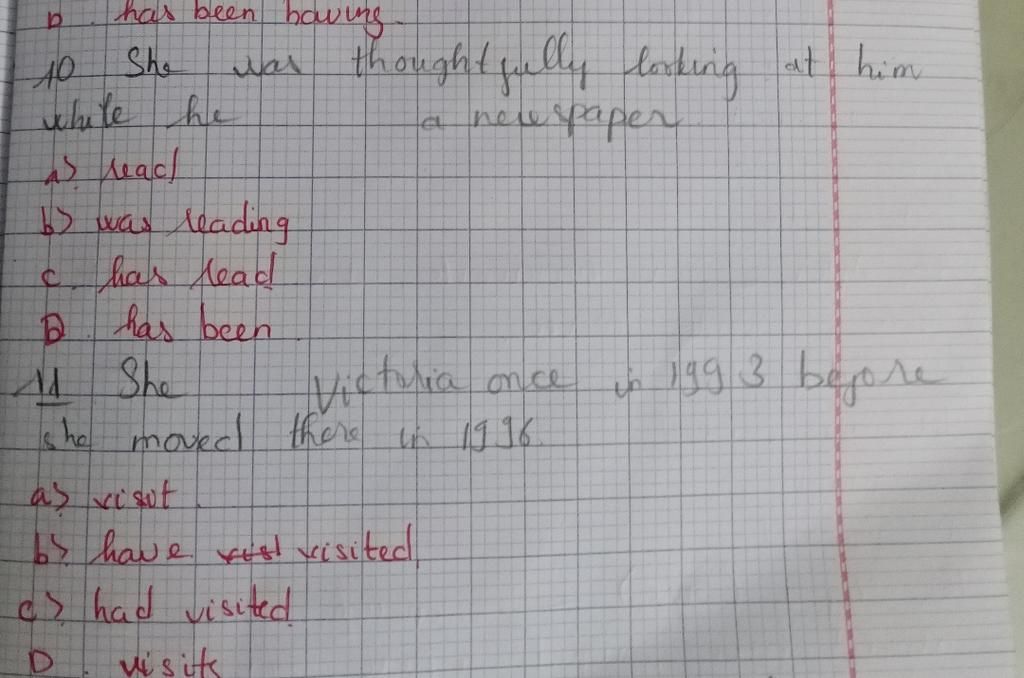 D has been having
10 She was thoughtfully looking at him
while he a newspaper
a) read
b) was reading
c has read
D. has been
11 She Victoria once in 1993 before
she moved there in 1996.
a) visit
b) have visited
c) had visited
D. visits